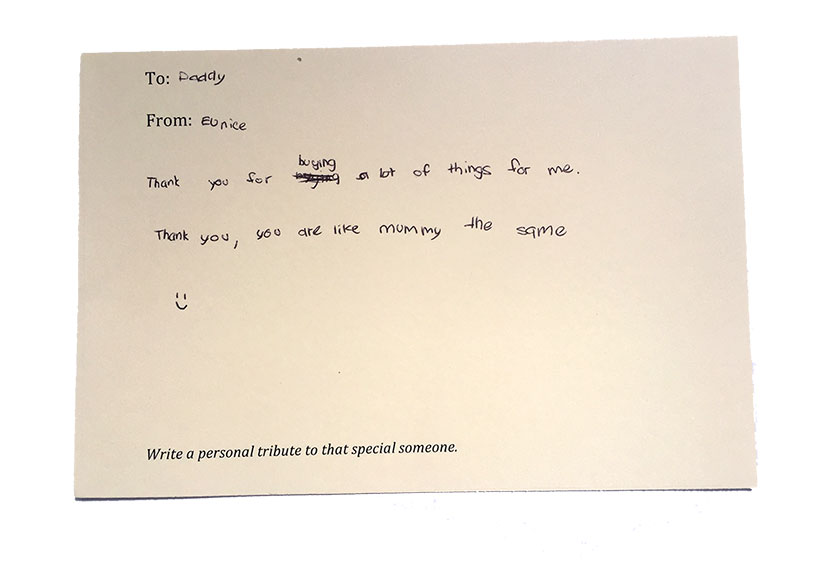 To: Daddy
From: Eunice
Thank you for buying a lot of things for me.
Thank you, you are like mummy the same
Write a personal tribute to that special someone.